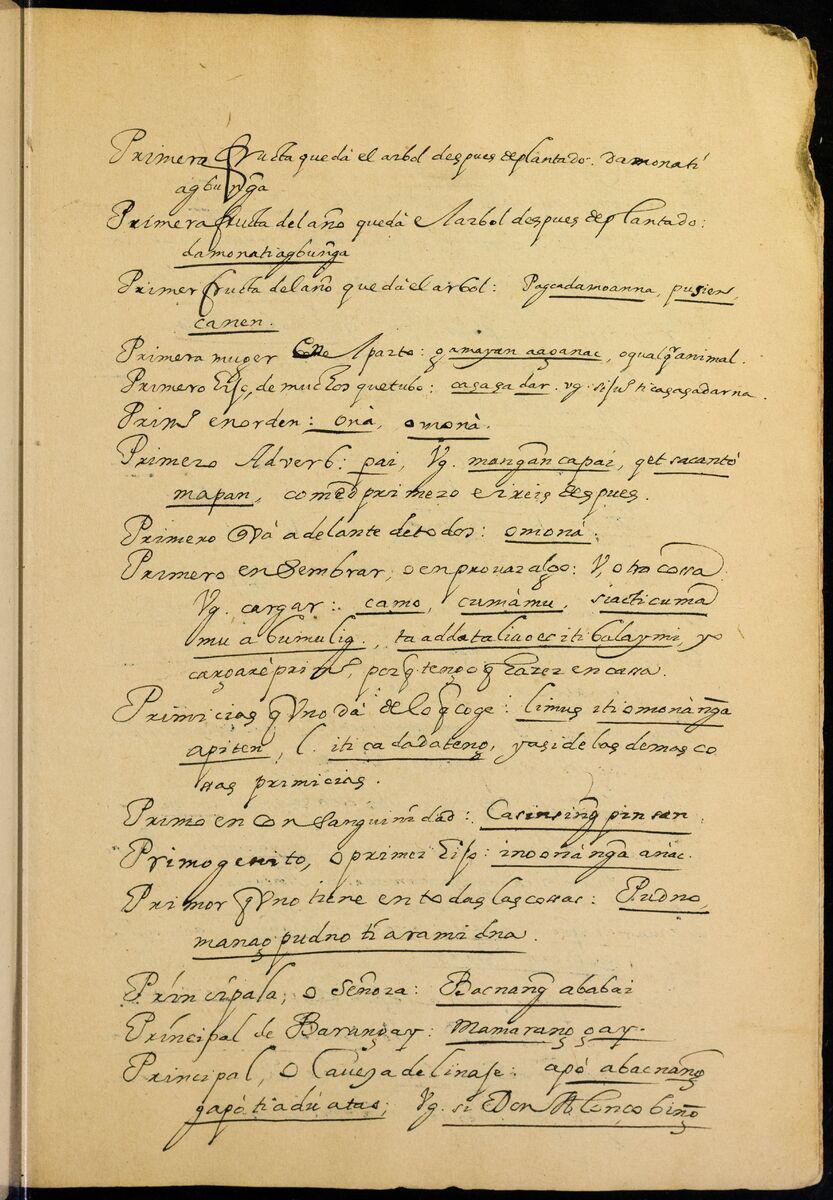 Primera fructa que dà el arbol despues de plantado. damonati
agbunga
Primera fructa del año que dà el arbol despues de plantado:
damonatiagbunga
Primer fructa del año que dà el arbol: Pagcadamoanna, pusien,
canen.
Primera muger al parto: gamayan aaganac, o qualqr animal.
Primero hijo, de muchos que tubo: cagagadar. vg. si Juº ti cagagadarna.
Primº en orden: onà, omonà.
Primero Adverb: pai, Vg. mangan capai, qet sacantò
mapan, comed primero e ireis despues.
Primero q̃ và adelante de todos: omonà.
Primero en sembrar, o en provar algo: V, otra cossa.
Vg. cargar: camo, cumàmu, siacticuma
mu abumulig, ta addataliaoec iti balaymi, yo
cargarè primº, porq̃ tengo q̃ hazer en cassa.
Primicias q̃ Vno dà de lo q̃ coge: limus iti omonànga
apiten, l. iti cadadateng, y asi de las demas co
ssas primicias.
Primo en con sanguinidad: Casinsing pinsan
Primogenito, o primer hijo: inoonànga anac.
Primor q̃ Vno tiene en todas las cossas: Pudno,
manag pudno ti aramidna.
Principala, o señora: Bacnang ababai
Principal de Barangay: Mamarang gay.
Principal, o Caveza de linaje: apò abacnang
gapò tiaduatao; Vg. si Don